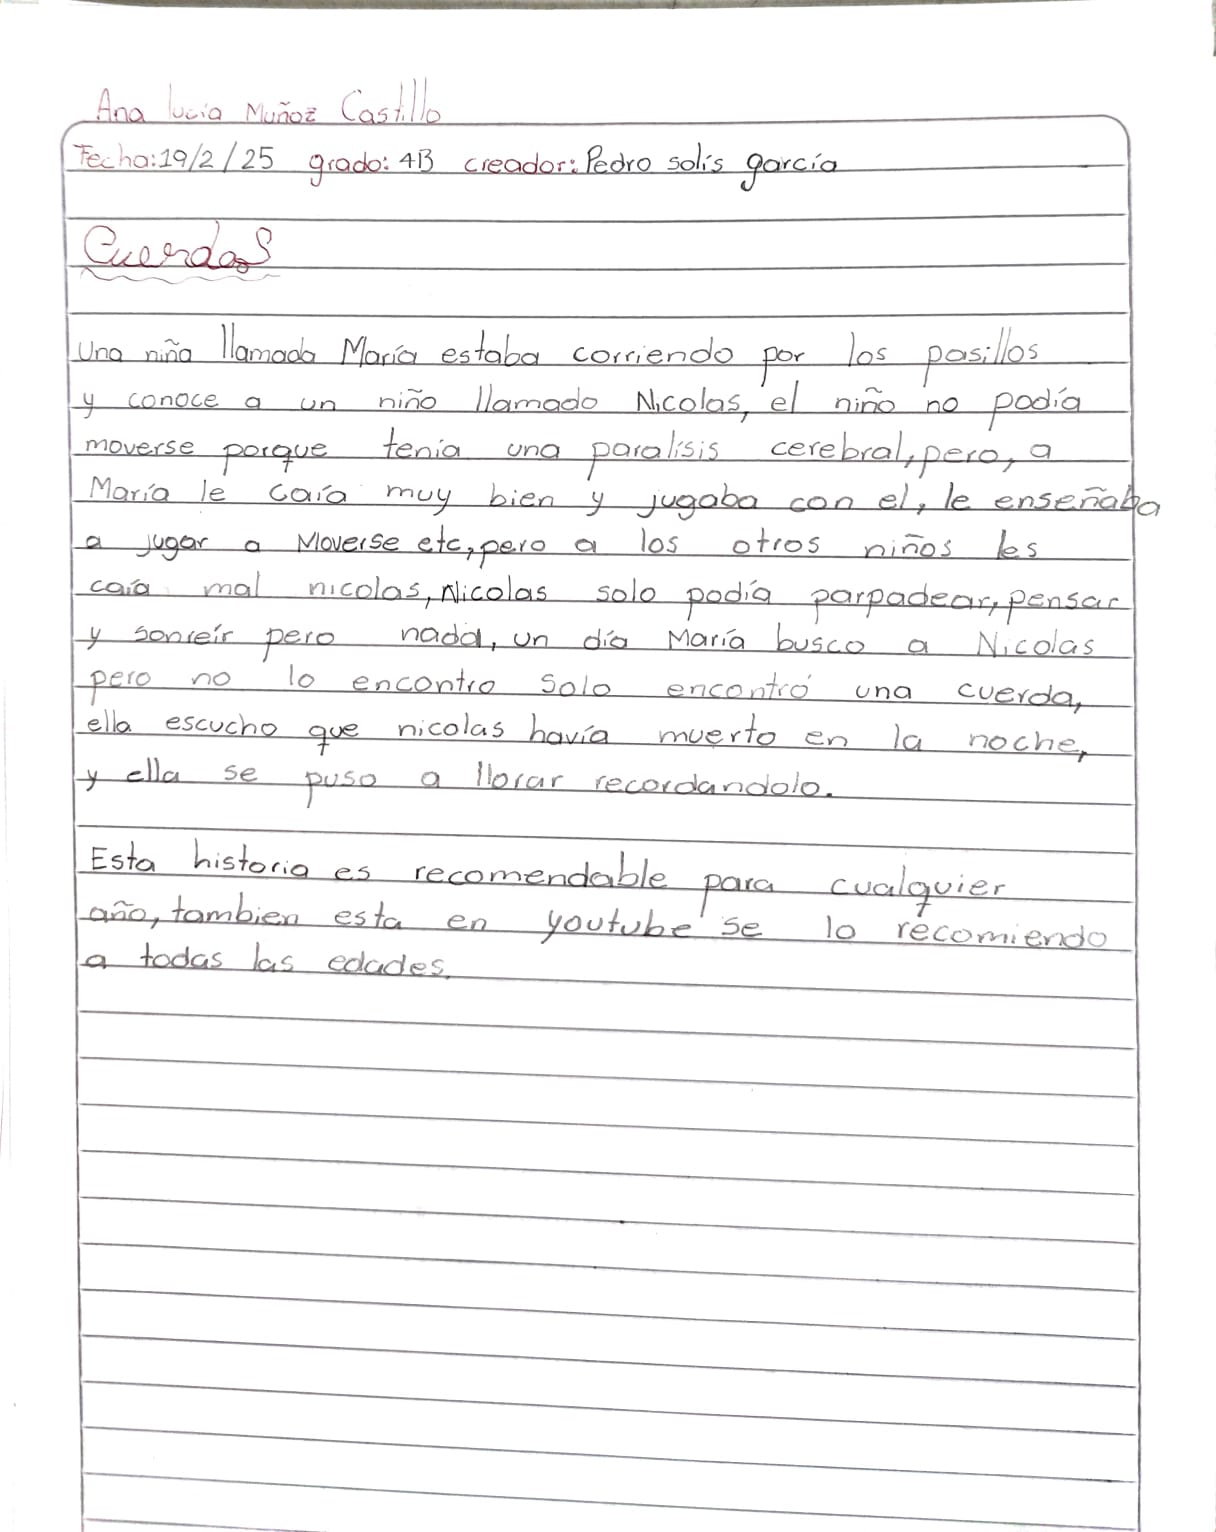 Ana lucia Muñoz Castillo
Fecha:19/2/25 grado: 4B creador: Pedro solís garcía
Cuerdas
Una niña llamada María estaba corriendo por los pasillos
y conoce a un niño llamado Nicolas, el niño no podía
moverse porque tenia una paralísis cerebral, pero, a
María le caía muy bien y jugaba con el, le enseñaba
a jugar a Moverse etc, pero a los otros niños les
caía mal nicolas, Nicolas solo podía parpadear, pensar
y sonreír pero nada, un día María busco a Nicolas
pero no lo encontro solo encontró una cuerda,
ella escucho que nicolas havía muerto en la noche,
y ella se puso a llorar recordandolo.
Esta historia es recomendable para cualquier
año, tambien esta en youtube se lo recomiendo
a todas las edades.